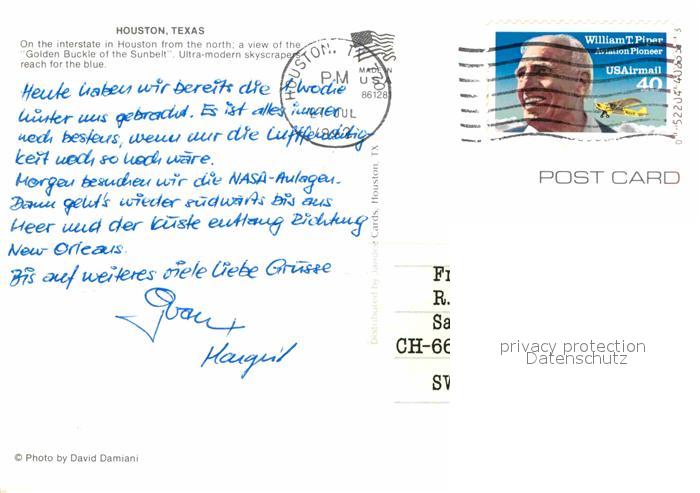 HOUSTON, TEXAS
On the interstate in Houston from the north; a view of the
"Golden Buckle of the Sunbelt". Ultra-modern skyscrapers
reach for the blue.
Heute haben wir bereits die 1. Woche
hinter uns gebracht. Es ist alles immer
noch bestens, wenn nur die Luftfeuchtig-
keit noch so hoch wäre.
Morgen besuchen wir die NASA-Anlagen.
Dann geht's wieder südwärts bis ans
Meer und der Küste entlang Richtung
New Orleans.
Bis auf weiteres viele liebe Grüsse
Margrit
© Photo by David Damiani
HOUSTON, TX
PM
JUL
MADE IN
U S
86128
Distributed by Cards, Houston, TX
William T. Piper
Aviation Pioneer
USAirmail
40
POST CARD
Fr
R.
Sa
CH-66
SW
privacy protection
Datenschutz